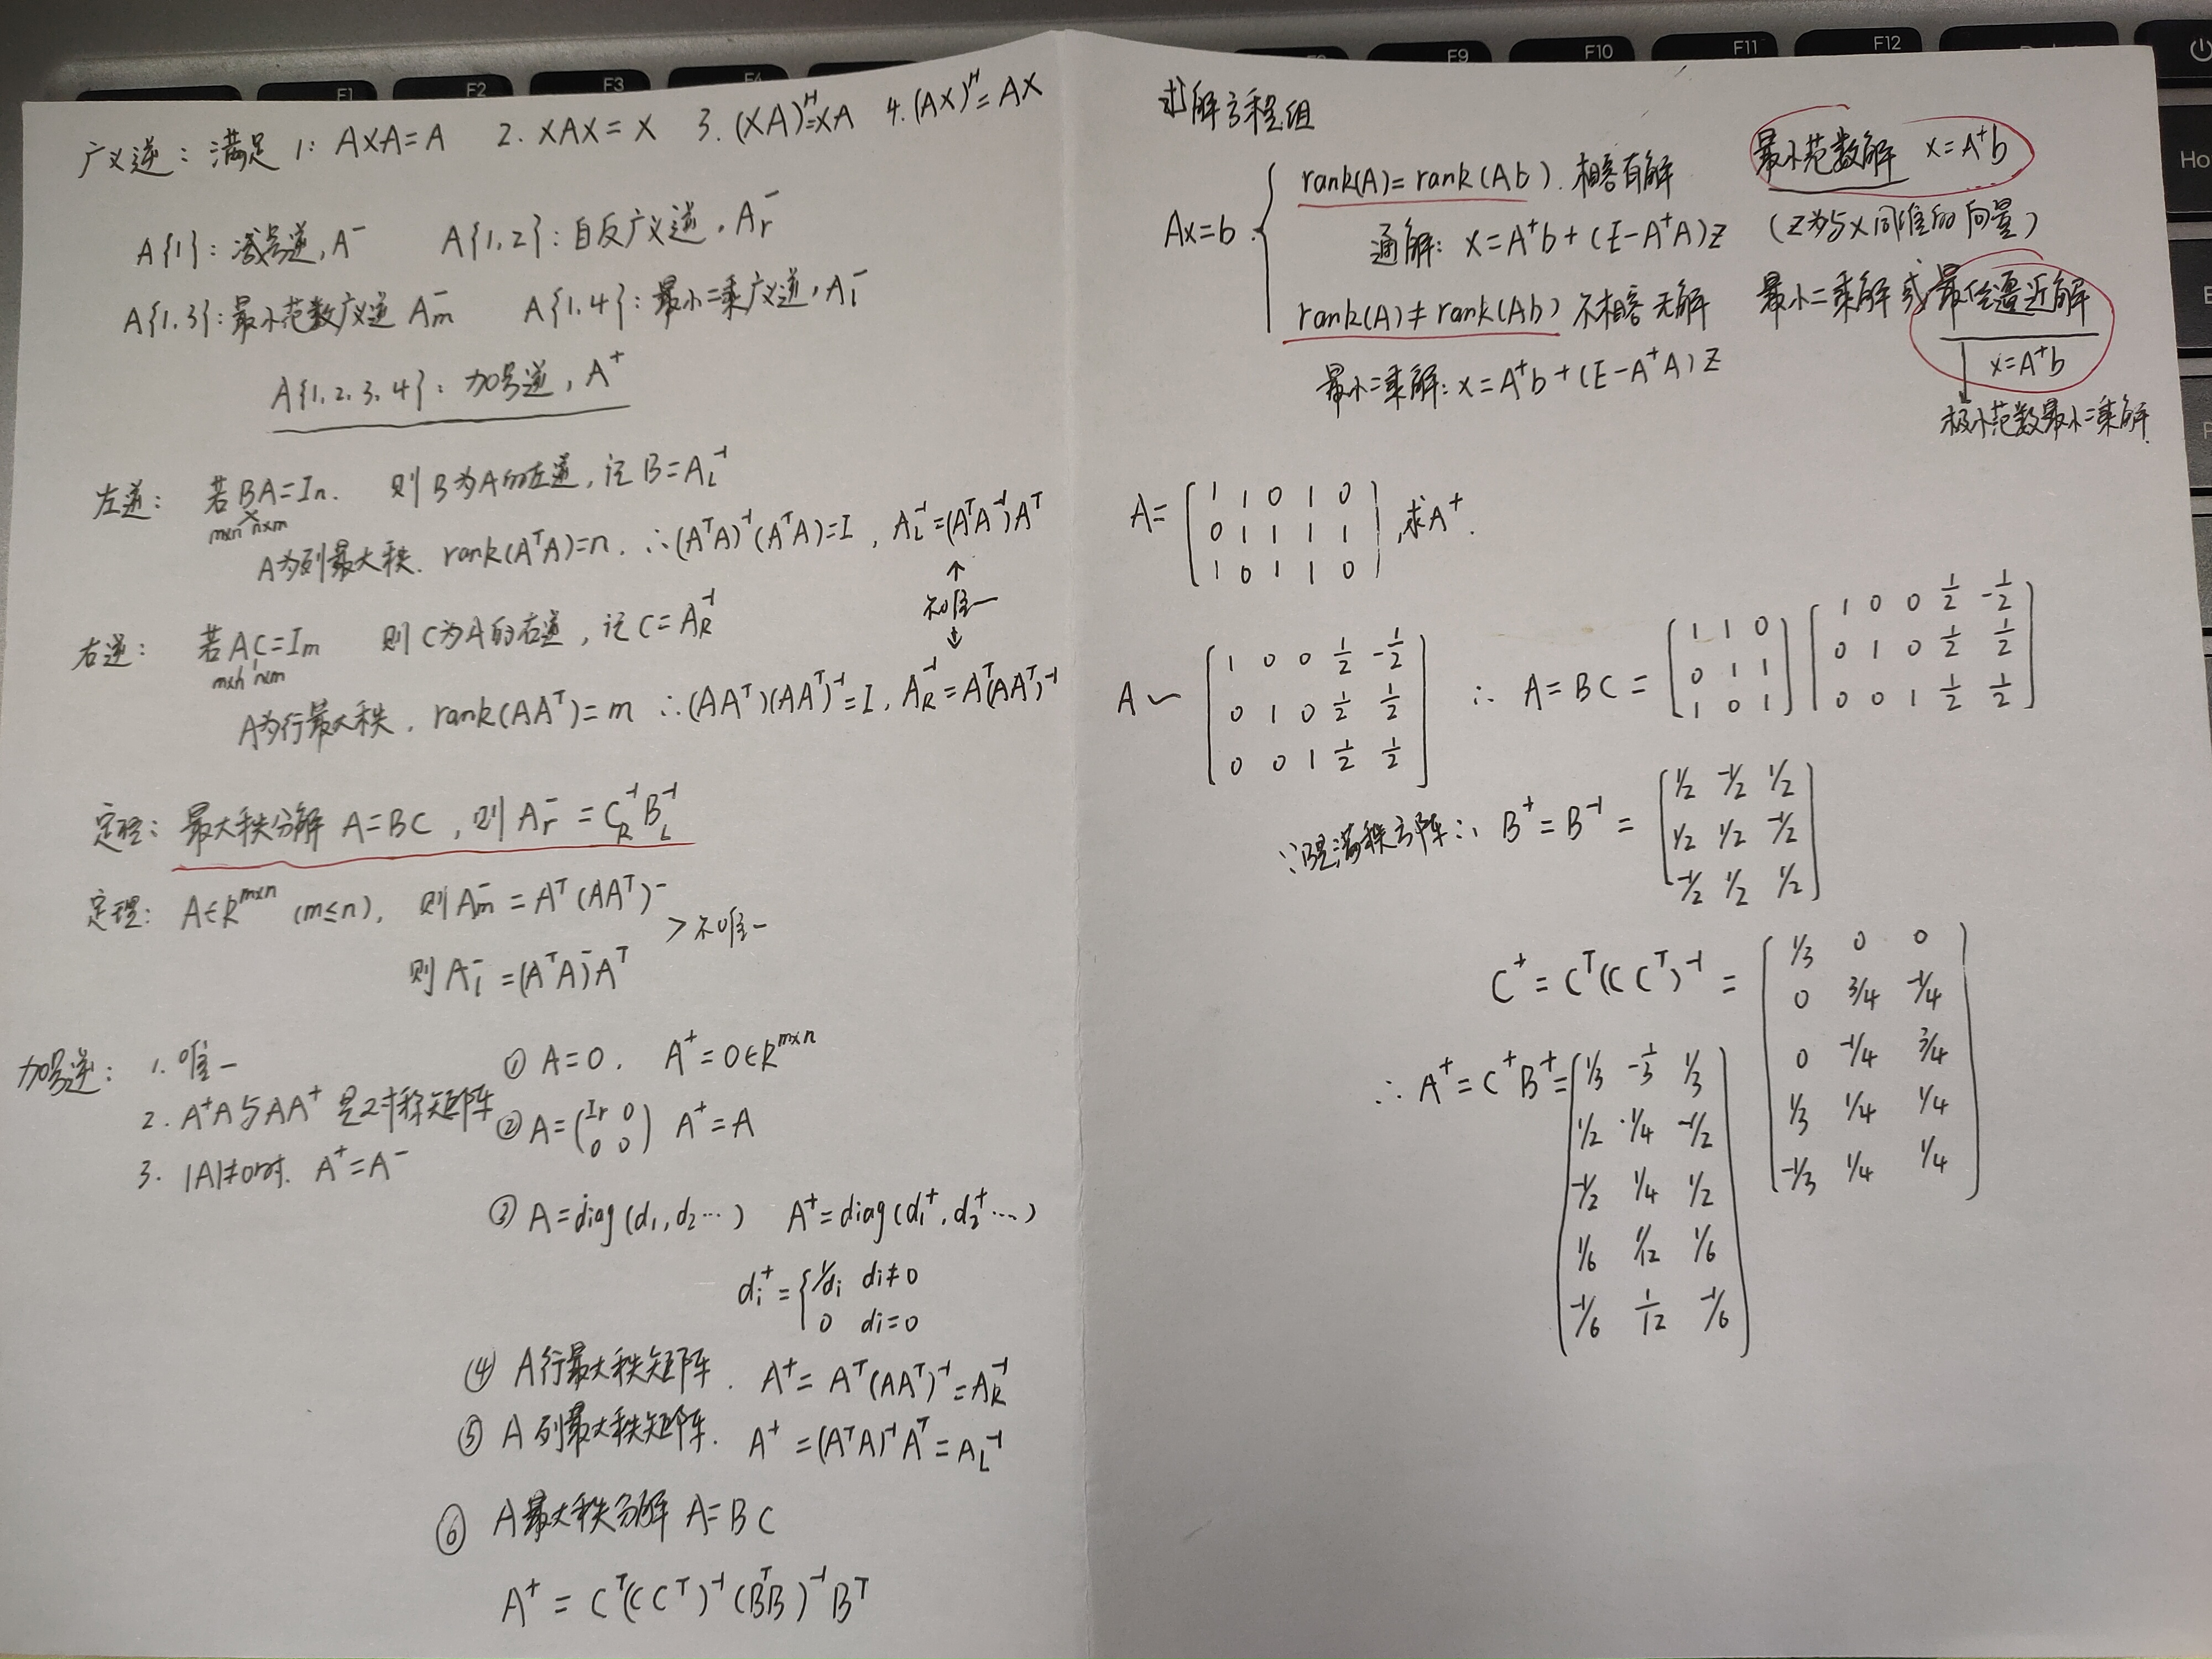 广义逆：满足 1: AXA=A 2. XAX=X 3. (XA)ᴴ=XA 4. (AX)ᴴ=AX
A{1}: 减号逆, A⁻ A{1,2}: 自反广义逆, Aᵣ⁻
A{1,3}: 最小范数广义逆 Aₘ⁻ A{1,4}: 最小二乘广义逆, Aₗ⁻
A{1,2,3,4}: 加号逆, A⁺
左逆： 若BA=In. 则B为A的左逆, 记B=A_L⁻¹
m×n n×m
A为列最大秩. rank(AᵀA)=n. ∴(AᵀA)⁻¹(AᵀA)=I, A_L⁻¹=(AᵀA⁻¹)Aᵀ
↑
不唯一
↓
右逆： 若AC=Im 则C为A的右逆, 记C=A_R⁻¹
m×n n×m
A为行最大秩. rank(AAᵀ)=m ∴(AAᵀ)(AAᵀ)⁻¹=I, A_R⁻¹=Aᵀ(AAᵀ)⁻¹
定理： 最大秩分解 A=BC, 则Aᵣ⁻=C_R⁻¹B_L⁻¹
定理： A∈Rᵐˣⁿ (m≤n), 则Aₘ⁻=Aᵀ(AAᵀ)⁻
> 不唯一
则Aₗ⁻=(AᵀA)⁻Aᵀ
加号逆： 1. 唯一
2. A⁺A与AA⁺是对称矩阵
3. |A|≠0时. A⁺=A⁻
① A=0. A⁺=0∈Rᵐˣⁿ
② A=(Ir 0 A⁺=A
0 0)
③ A=diag(d₁,d₂…) A⁺=diag(d₁⁺,d₂⁺…)
dᵢ⁺={1/di di≠0
0 di=0
④ A行最大秩矩阵. A⁺=Aᵀ(AAᵀ)⁻¹=A_R⁻¹
⑤ A列最大秩矩阵. A⁺=(AᵀA)⁻¹Aᵀ=A_L⁻¹
⑥ A最大秩分解 A=BC
A⁺=Cᵀ(CCᵀ)⁻¹(BᵀB)⁻¹Bᵀ
求解方程组
Ax=b
rank(A)=rank(Ab). 相容有解 最小范数解 x=A⁺b
通解: x=A⁺b+(E-A⁺A)Z (Z为与x同维的向量)
rank(A)≠rank(Ab) 不相容 无解 最小二乘解 或 最佳逼近解
x=A⁺b
最小二乘解: x=A⁺b+(E-A⁺A)Z
极小范数最小二乘解
A= [1 1 0 1 0
0 1 1 1 1
1 0 1 1 0], 求A⁺.
A ~ [1 0 0 1/2 -1/2
0 1 0 1/2 1/2
0 0 1 1/2 1/2]
∴ A=BC= [1 1 0
0 1 1
1 0 1]
[1 0 0 1/2 -1/2
0 1 0 1/2 1/2
0 0 1 1/2 1/2]
∵B是满秩方阵∴ B⁺=B⁻¹= [1/2 -1/2 1/2
1/2 1/2 -1/2
-1/2 1/2 1/2]
C⁺=Cᵀ(CCᵀ)⁻¹= [1/3 0 0
0 3/4 -1/4
0 -1/4 3/4
1/3 1/4 1/4
-1/3 1/4 1/4]
∴ A⁺=C⁺B⁺= [1/3 -1/3 1/3
1/2 1/4 -1/2
-1/2 1/4 1/2
1/6 1/12 1/6
-1/6 1/12 -1/6]